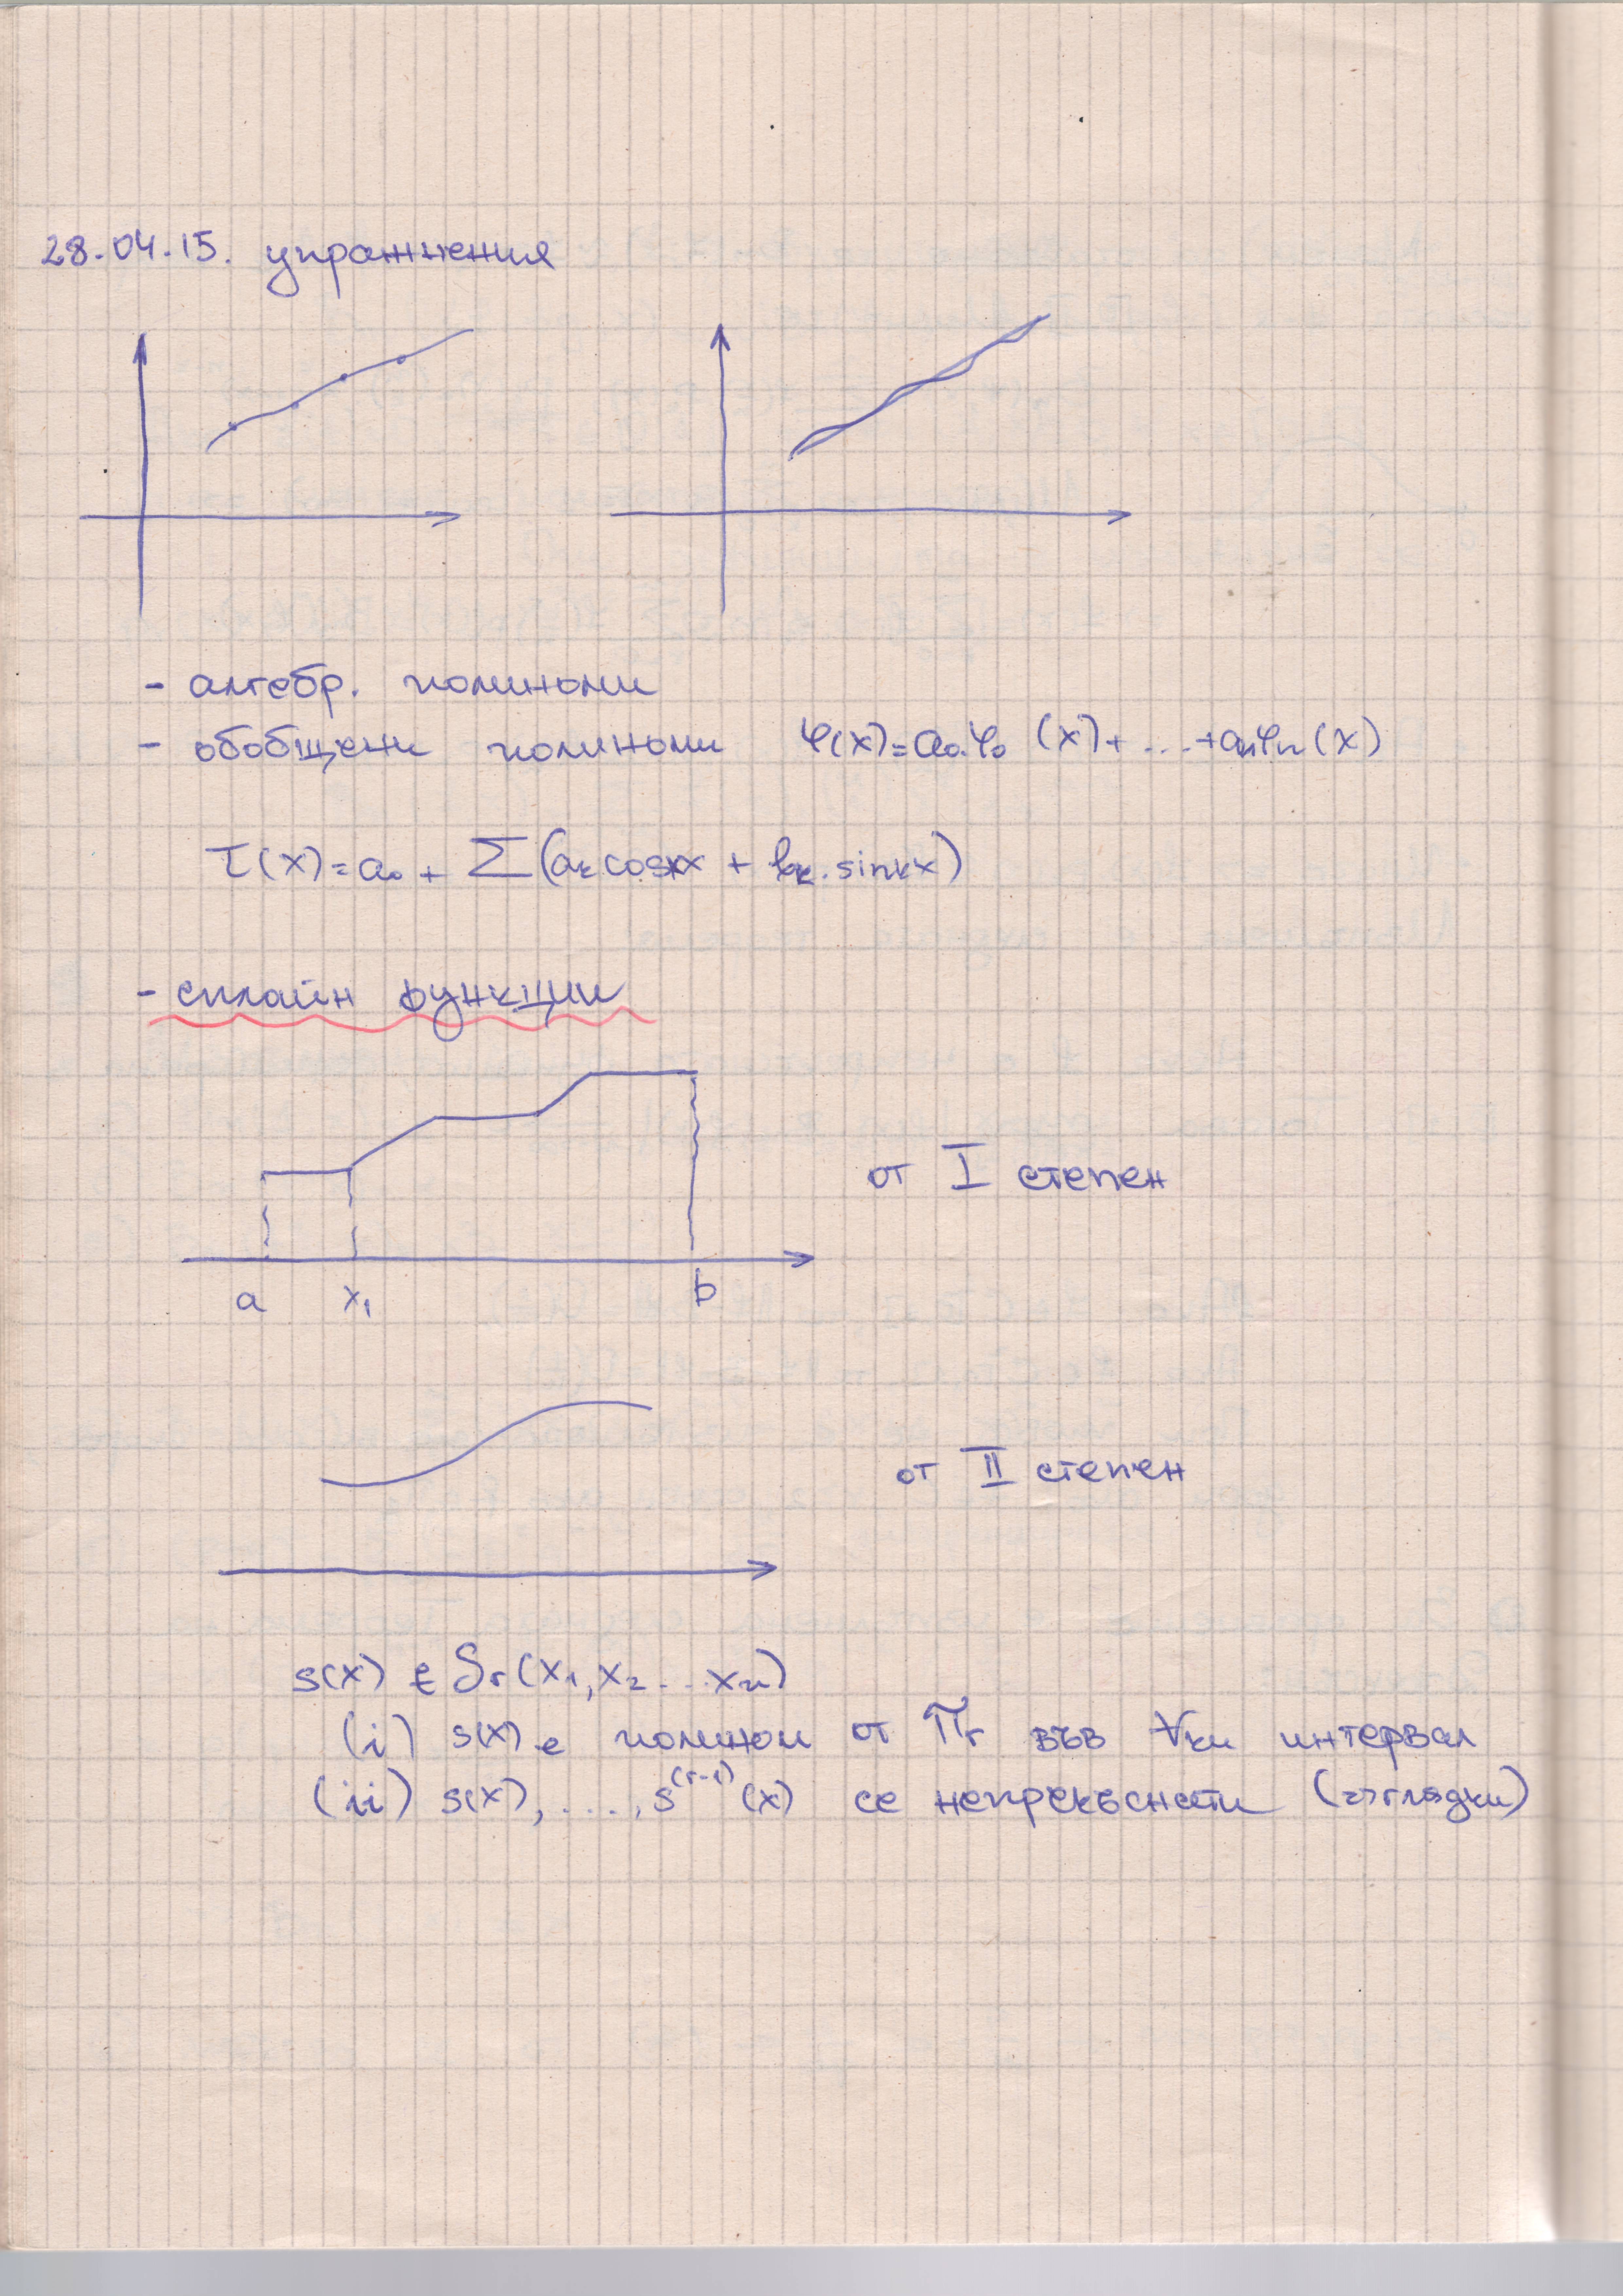 28.04.15. упражнения
- алгебр. полиноми
- обобщени полиноми φ(x)=a₀.φ₀ (x)+ ... +aₙφₙ(x)
τ(x)=a₀ + ∑(aₖcoskx + bₖ.sinkx)
- сплайн функции
от I степен
a x₁ b
от II степен
s(x) ∈ Sᵣ(x₁,x₂...xₙ)
(i) s(x) е полином от πᵣ във ∀ки интервал
(ii) s(x), ...., s⁽ʳ⁻¹⁾(x) се непрекъснати